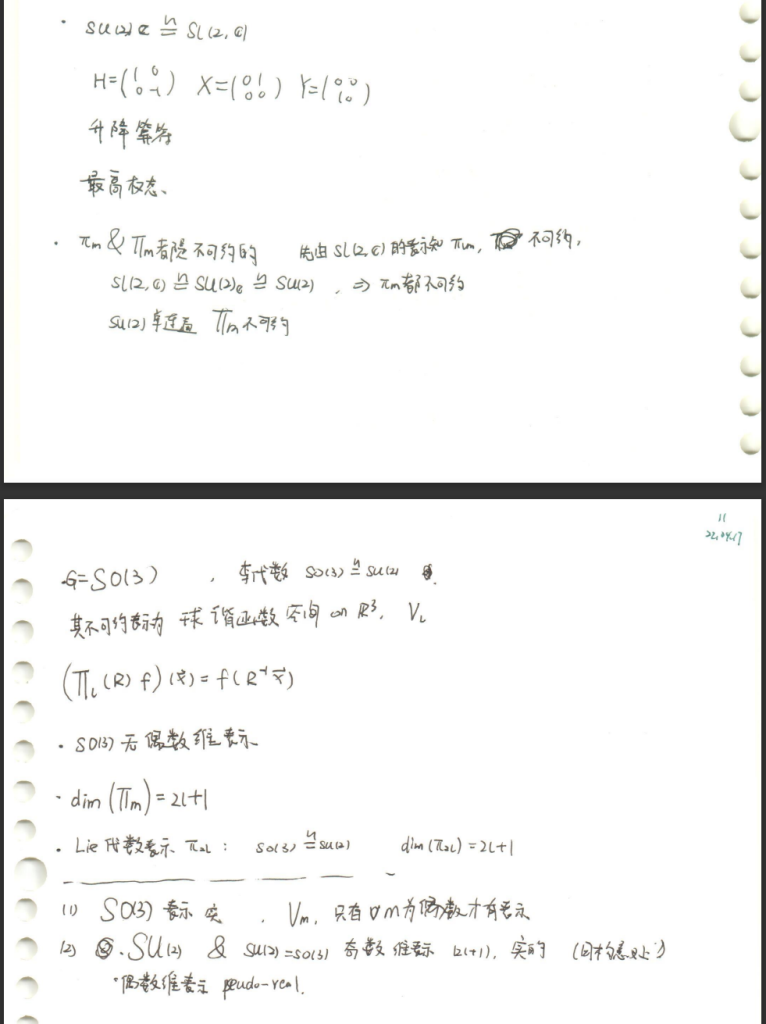 · su(2)_C ≅ sl(2,C)
H=(1 0 0 -1) X=(0 1 0 0) Y=(0 0 1 0)
升降算符
最高权态、
· πm & Πm都是不可约的 先由 sl(2,C) 的表示知 πm, 不可约,
sl(2,C) ≅ su(2)_C ≅ su(2) , ⇒ πm都不可约
SU(2)单连通 Πm不可约
11
22.04.17
·G=SO(3) , 李代数 so(3) ≅ su(2)
其不可约表示为 球谐函数空间 on R³, V_l
(Π_l (R) f) (x⃗) = f(R⁻¹x⃗)
· SO(3) 无偶数维表示
· dim (Πm) = 2l+1
· Lie 代数表示 π2l : so(3) ≅ su(2) dim(π2l) = 2l+1
(1) SO(3) 表示 实 , Vm, 只有 m为偶数才有表示
(2) · SU(2) & su(2)=so(3) 奇数维表示 (2l+1), 实的
·偶数维表示 pseudo-real.